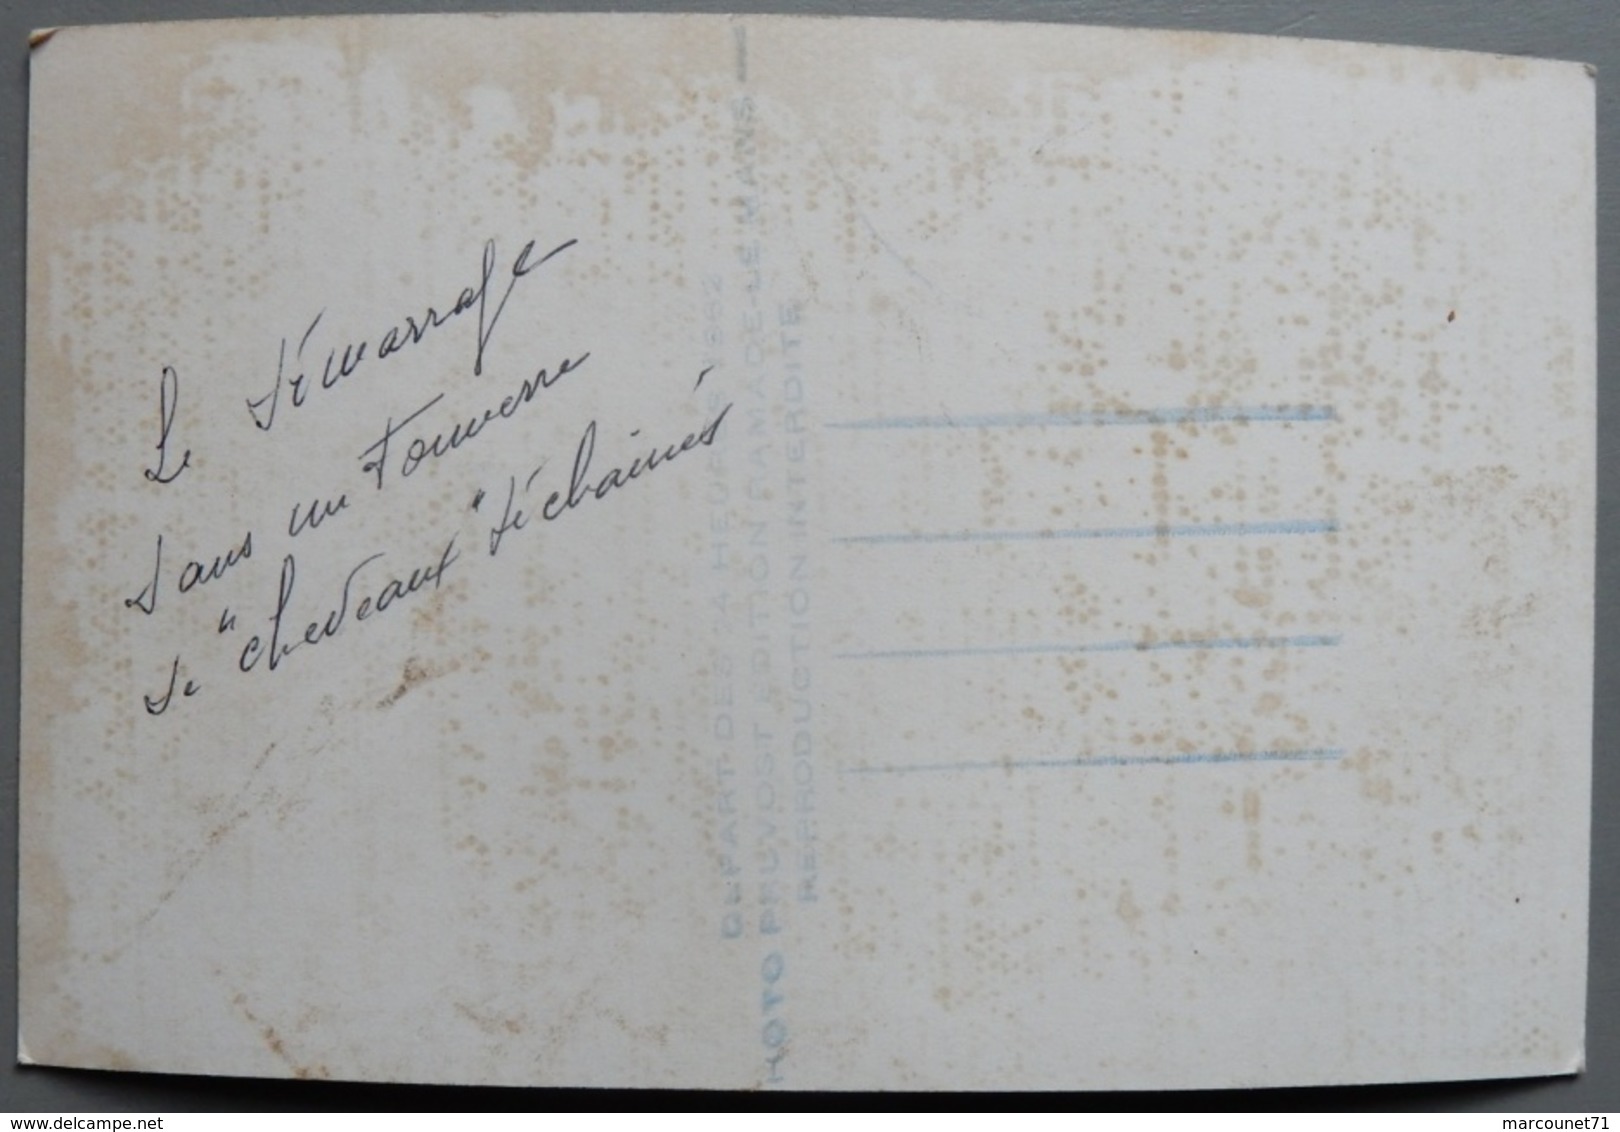 Le démarrage
dans un Tonnerre
de "chevaux" déchainés
DEPART DES 24 HEURES 1962
PHOTO PREVOST EDITION LAMADE-LE MANS
REPRODUCTION INTERDITE
www.delcampe.net
marcounet71